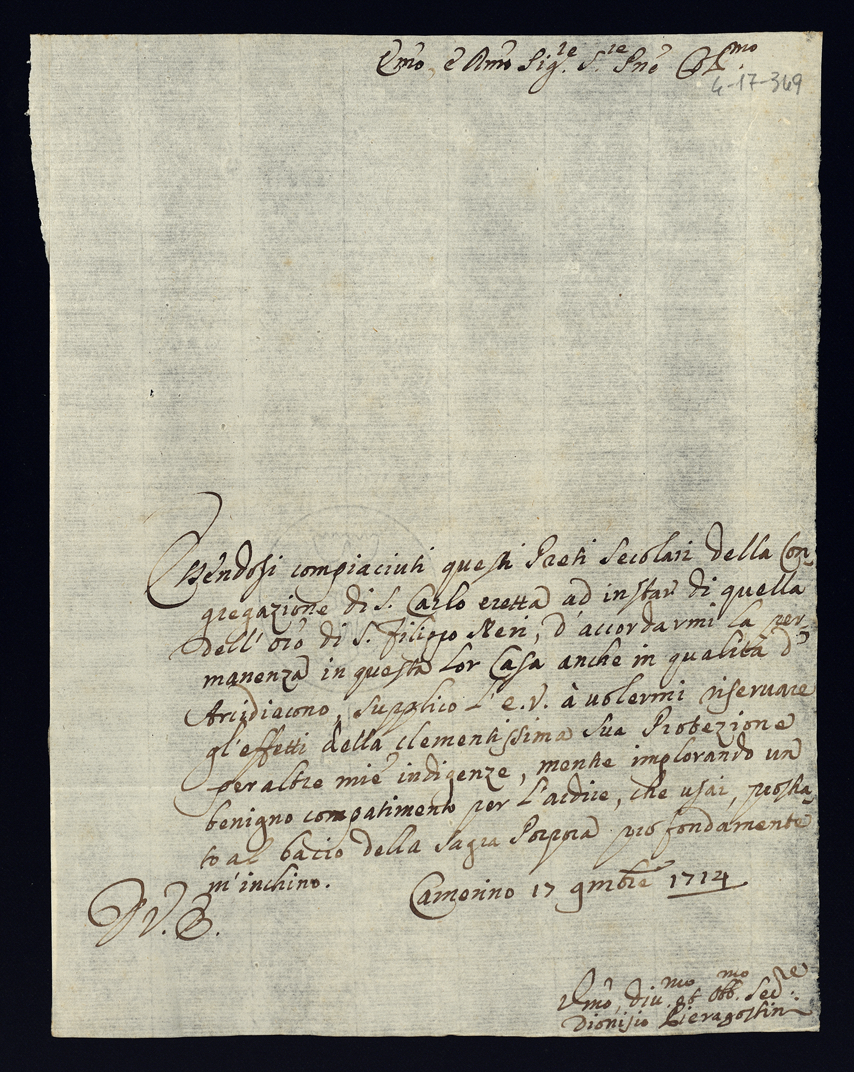 Emo, e Rmo Sig.re S.re Pne Col.mo
4-17-349
Essendosi compiaciuti questi Preti Secolari della Con-
gregazione di S. Carlo eretta ad instar di quella
dell' Orō di S. Filippo Neri, d' accordarmi la per-
manenza in questa lor Casa anche in qualità d'
Arcidiacono, supplico l' E.V. à volermi riservare
gl' effetti della clementissima sua Protezione
per altre mie indigenze, mentre implorando un
benigno compatimento per l' ardire, che usai, prostra-
to al bacio della Sagra Porpora profondamente
m' inchino.
Camerino 17 9mbre 1714
D V. E.
Umo, div.mo et obb.mo Ser.re
Dionisio Pieragostini